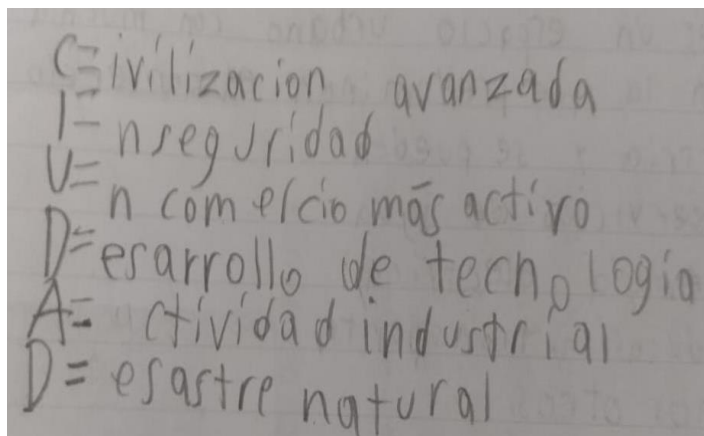 C= ivilizacion avanzada
I= nseguridad
U= n comercio más activo
D= esarrollo de tecnologia
A= ctividad industrial
D= esastre natural